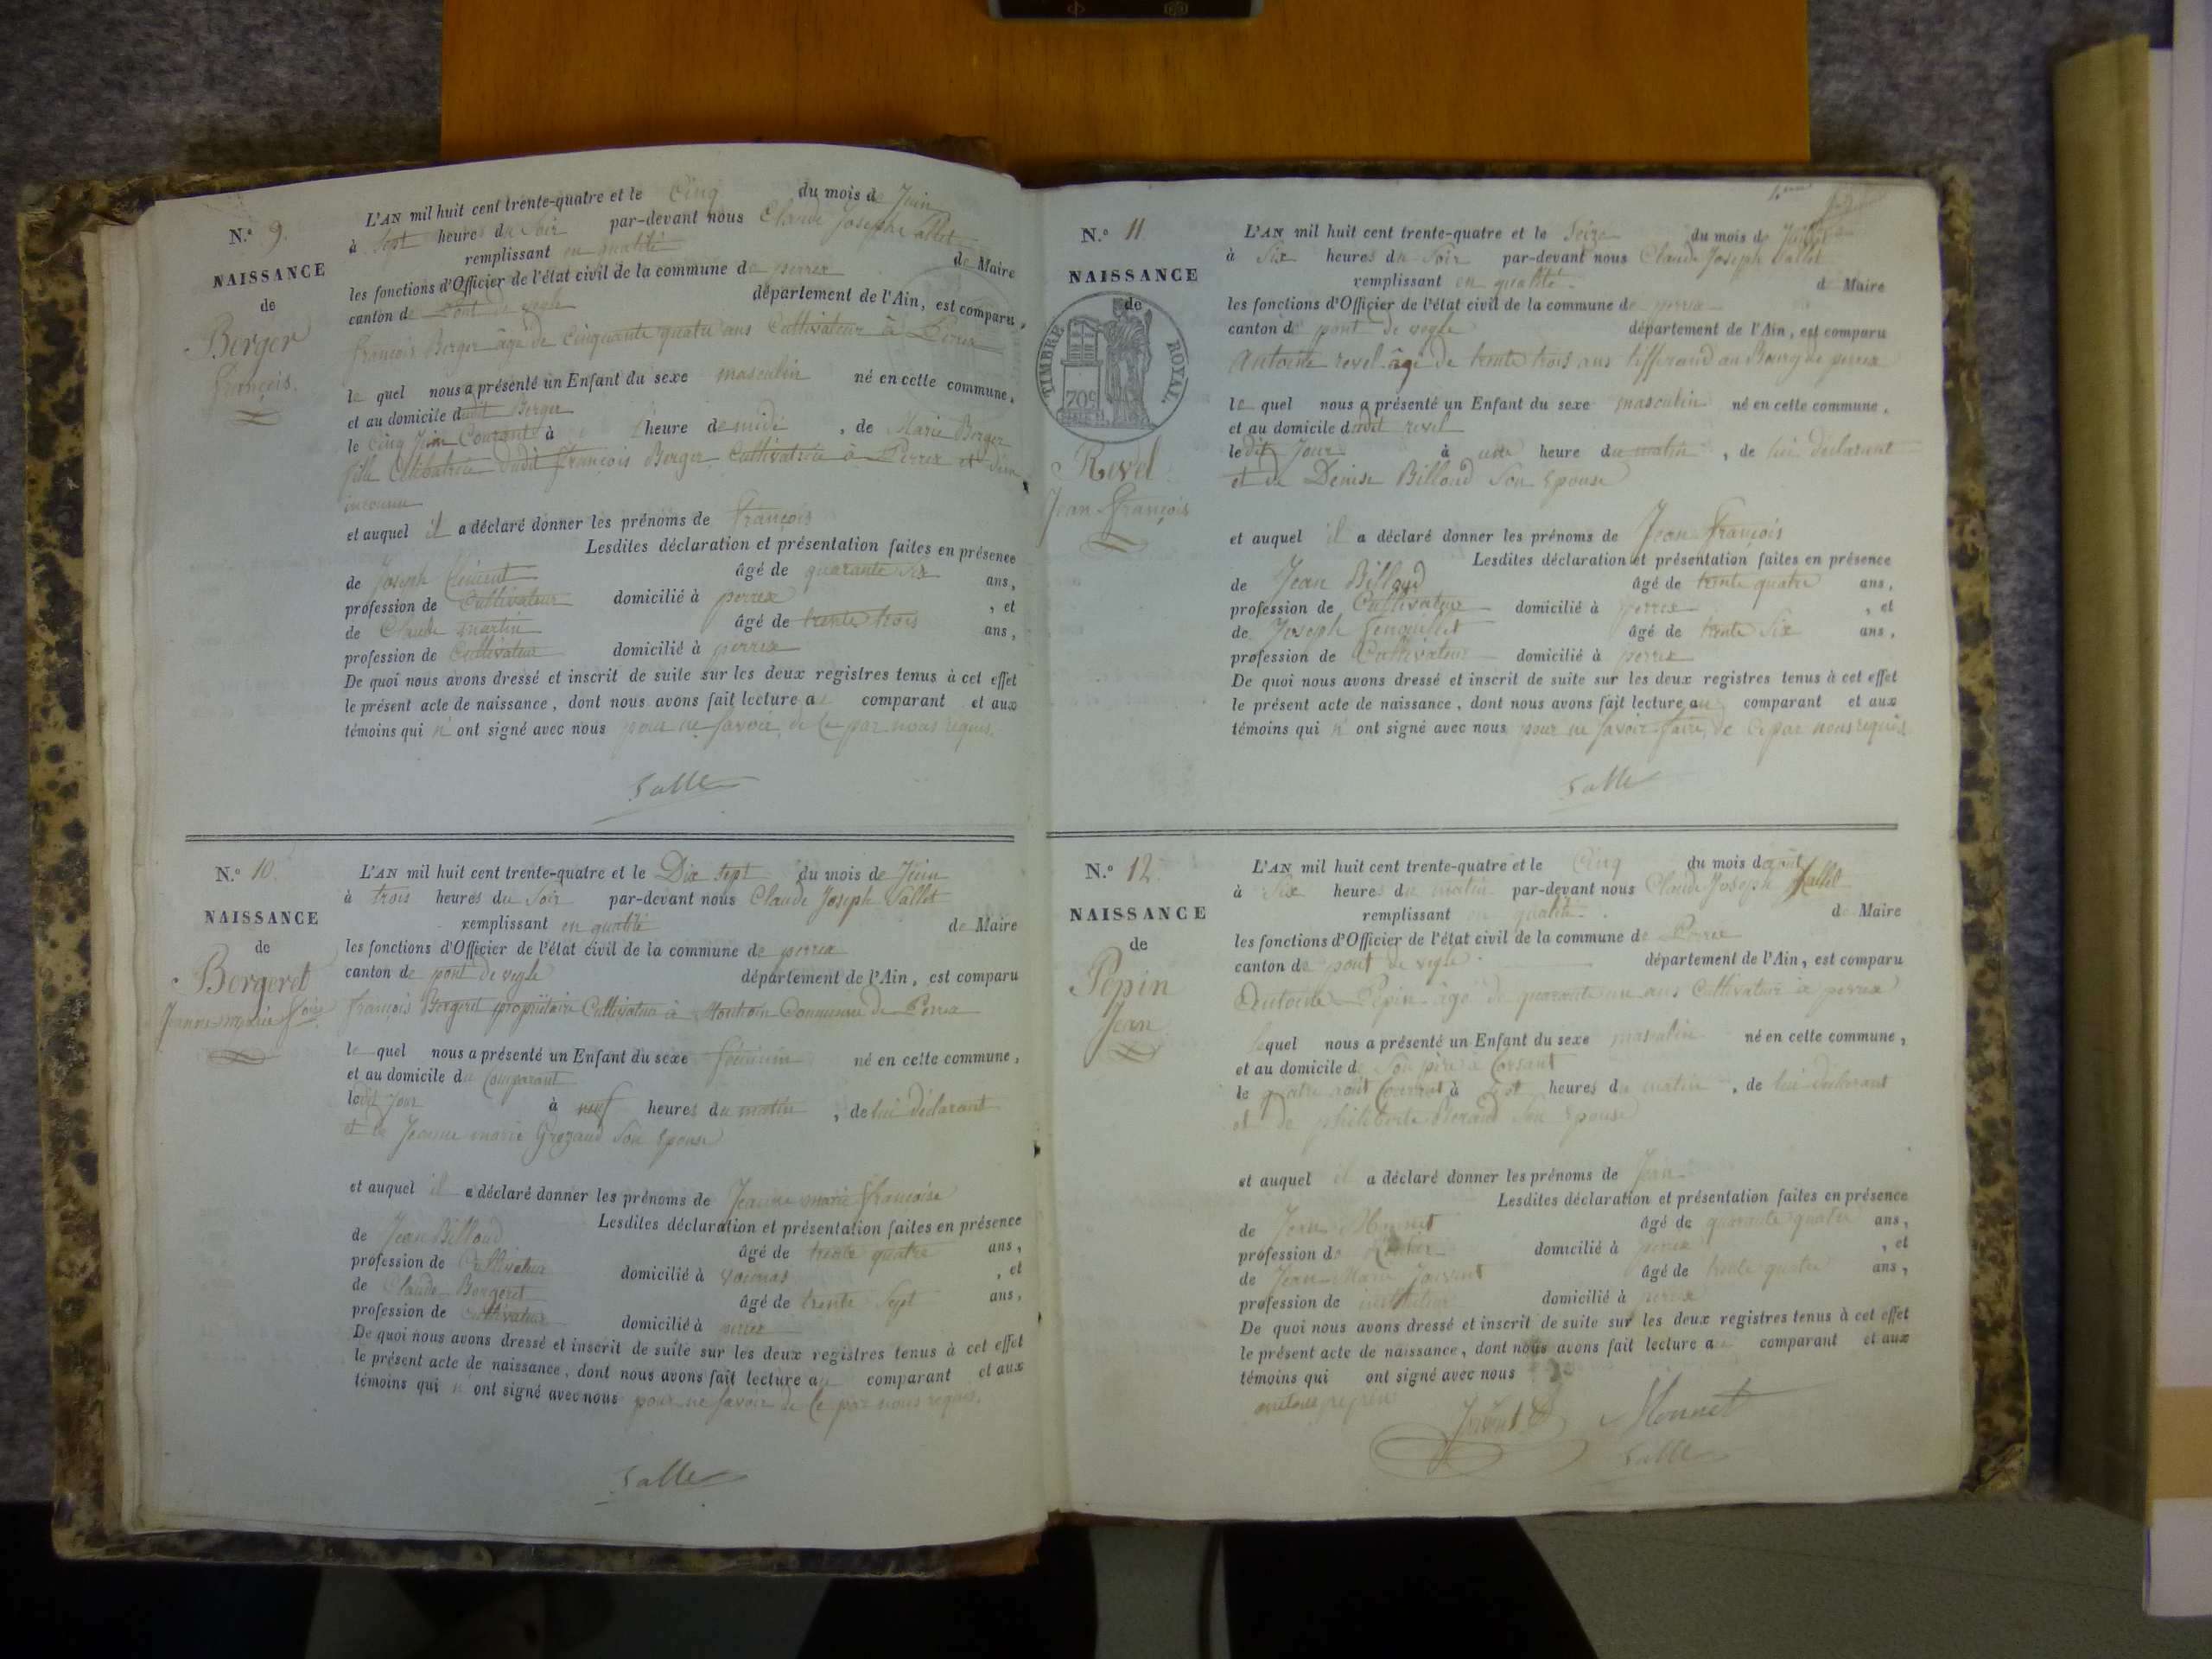 N.º 9.
NAISSANCE
de
Berger
François.
L'AN mil huit cent trente-quatre et le Cinq du mois de Juin
à Sept heures du Soir par-devant nous Claude Joseph Sallet
remplissant en qualité de Maire
les fonctions d'Officier de l'état civil de la commune de perrex
canton de Pont de vegle département de l'Ain, est comparu,
françois Berger âgé de Cinquante quatre ans Cultivateur à Perrex
le quel nous a présenté un Enfant du sexe masculin né en cette commune,
et au domicile dudit Berger
le Cinq Juin Courant à l'heure de midi, de Marie Berger
fille Célibatrice dudit françois Berger, Cultivatrice à Perrex et d'un
inconnu
et auquel il a déclaré donner les prénoms de françois
Lesdites déclaration et présentation faites en présence
de Joseph Clément âgé de quarante six ans,
profession de Cultivateur domicilié à perrex, et
de Claude martin âgé de trente trois ans,
profession de Cultivateur domicilié à perrex
De quoi nous avons dressé et inscrit de suite sur les deux registres tenus à cet effet
le présent acte de naissance, dont nous avons fait lecture au comparant et aux
témoins qui n'ont signé avec nous pour ne savoir, de ce par nous requis.
Salle
N.º 10.
NAISSANCE
de
Bergeret
Jeanne marie foise.
L'AN mil huit cent trente-quatre et le Dix Sept du mois de Juin
à trois heures du Soir par-devant nous Claude Joseph Sallet
remplissant en qualité de Maire
les fonctions d'Officier de l'état civil de la commune de perrex
canton de pont de vegle département de l'Ain, est comparu
françois Bergeret propriétaire Cultivateur à Commune de Perrex
le quel nous a présenté un Enfant du sexe féminin né en cette commune,
et au domicile du Comparant
ledit jour à neuf heures du matin, de lui déclarant
et de Jeanne marie Grozaud Son Epouse
et auquel il a déclaré donner les prénoms de Jeanne marie françoise
Lesdites déclaration et présentation faites en présence
de Jean Billoud âgé de trente quatre ans,
profession de Cultivateur domicilié à vonnas, et
de Claude Bergeret âgé de trente Sept ans,
profession de Cultivateur domicilié à perrex
De quoi nous avons dressé et inscrit de suite sur les deux registres tenus à cet effet
le présent acte de naissance, dont nous avons fait lecture au comparant et aux
témoins qui n'ont signé avec nous pour ne savoir de ce par nous requis.
Salle
N.º 11
NAISSANCE
de
TIMBRE ROYAL.
70c
Revel
Jean François
L'AN mil huit cent trente-quatre et le Seize du mois de Juillet
à Six heures du Soir par-devant nous Claude Joseph Sallet
remplissant en qualité de Maire
les fonctions d'Officier de l'état civil de la commune de perrex
canton de pont de vegle département de l'Ain, est comparu
Antoine revel âgé de trente trois ans tisserand au Bourg de perrex
le quel nous a présenté un Enfant du sexe masculin né en cette commune,
et au domicile dudit revel
ledit Jour à une heure du matin, de lui déclarant
et de Denise Billoud Son Epouse
et auquel il a déclaré donner les prénoms de Jean François
Lesdites déclaration et présentation faites en présence
de Jean Billoud âgé de trente quatre ans,
profession de Cultivateur domicilié à perrex, et
de Joseph âgé de trente Six ans,
profession de Cultivateur domicilié à perrex
De quoi nous avons dressé et inscrit de suite sur les deux registres tenus à cet effet
le présent acte de naissance, dont nous avons fait lecture au comparant et aux
témoins qui n'ont signé avec nous pour ne savoir faire, de ce par nous requis
Salle
N.º 12.
NAISSANCE
de
Pepin
Jean
L'AN mil huit cent trente-quatre et le Cinq du mois d'août
à Six heures du matin par-devant nous Claude Joseph Sallet
remplissant en qualité de Maire
les fonctions d'Officier de l'état civil de la commune de Perrex
canton de pont de vegle département de l'Ain, est comparu
Antoine Pepin âgé de quarante un ans Cultivateur à perrex
lequel nous a présenté un Enfant du sexe masculin né en cette commune,
et au domicile de Son père à Corsant
le quatre août Courant à Sept heures du matin, de lui déclarant
et de philiberte Son Epouse
et auquel il a déclaré donner les prénoms de Jean
Lesdites déclaration et présentation faites en présence
de Jean Monnet âgé de quarante quatre ans,
profession de domicilié à perrex, et
de Jean Marie âgé de trente quatre ans,
profession de instituteur domicilié à perrex
De quoi nous avons dressé et inscrit de suite sur les deux registres tenus à cet effet
le présent acte de naissance, dont nous avons fait lecture au comparant et aux
témoins qui ont signé avec nous
antoine pepin
Monnet
Salle